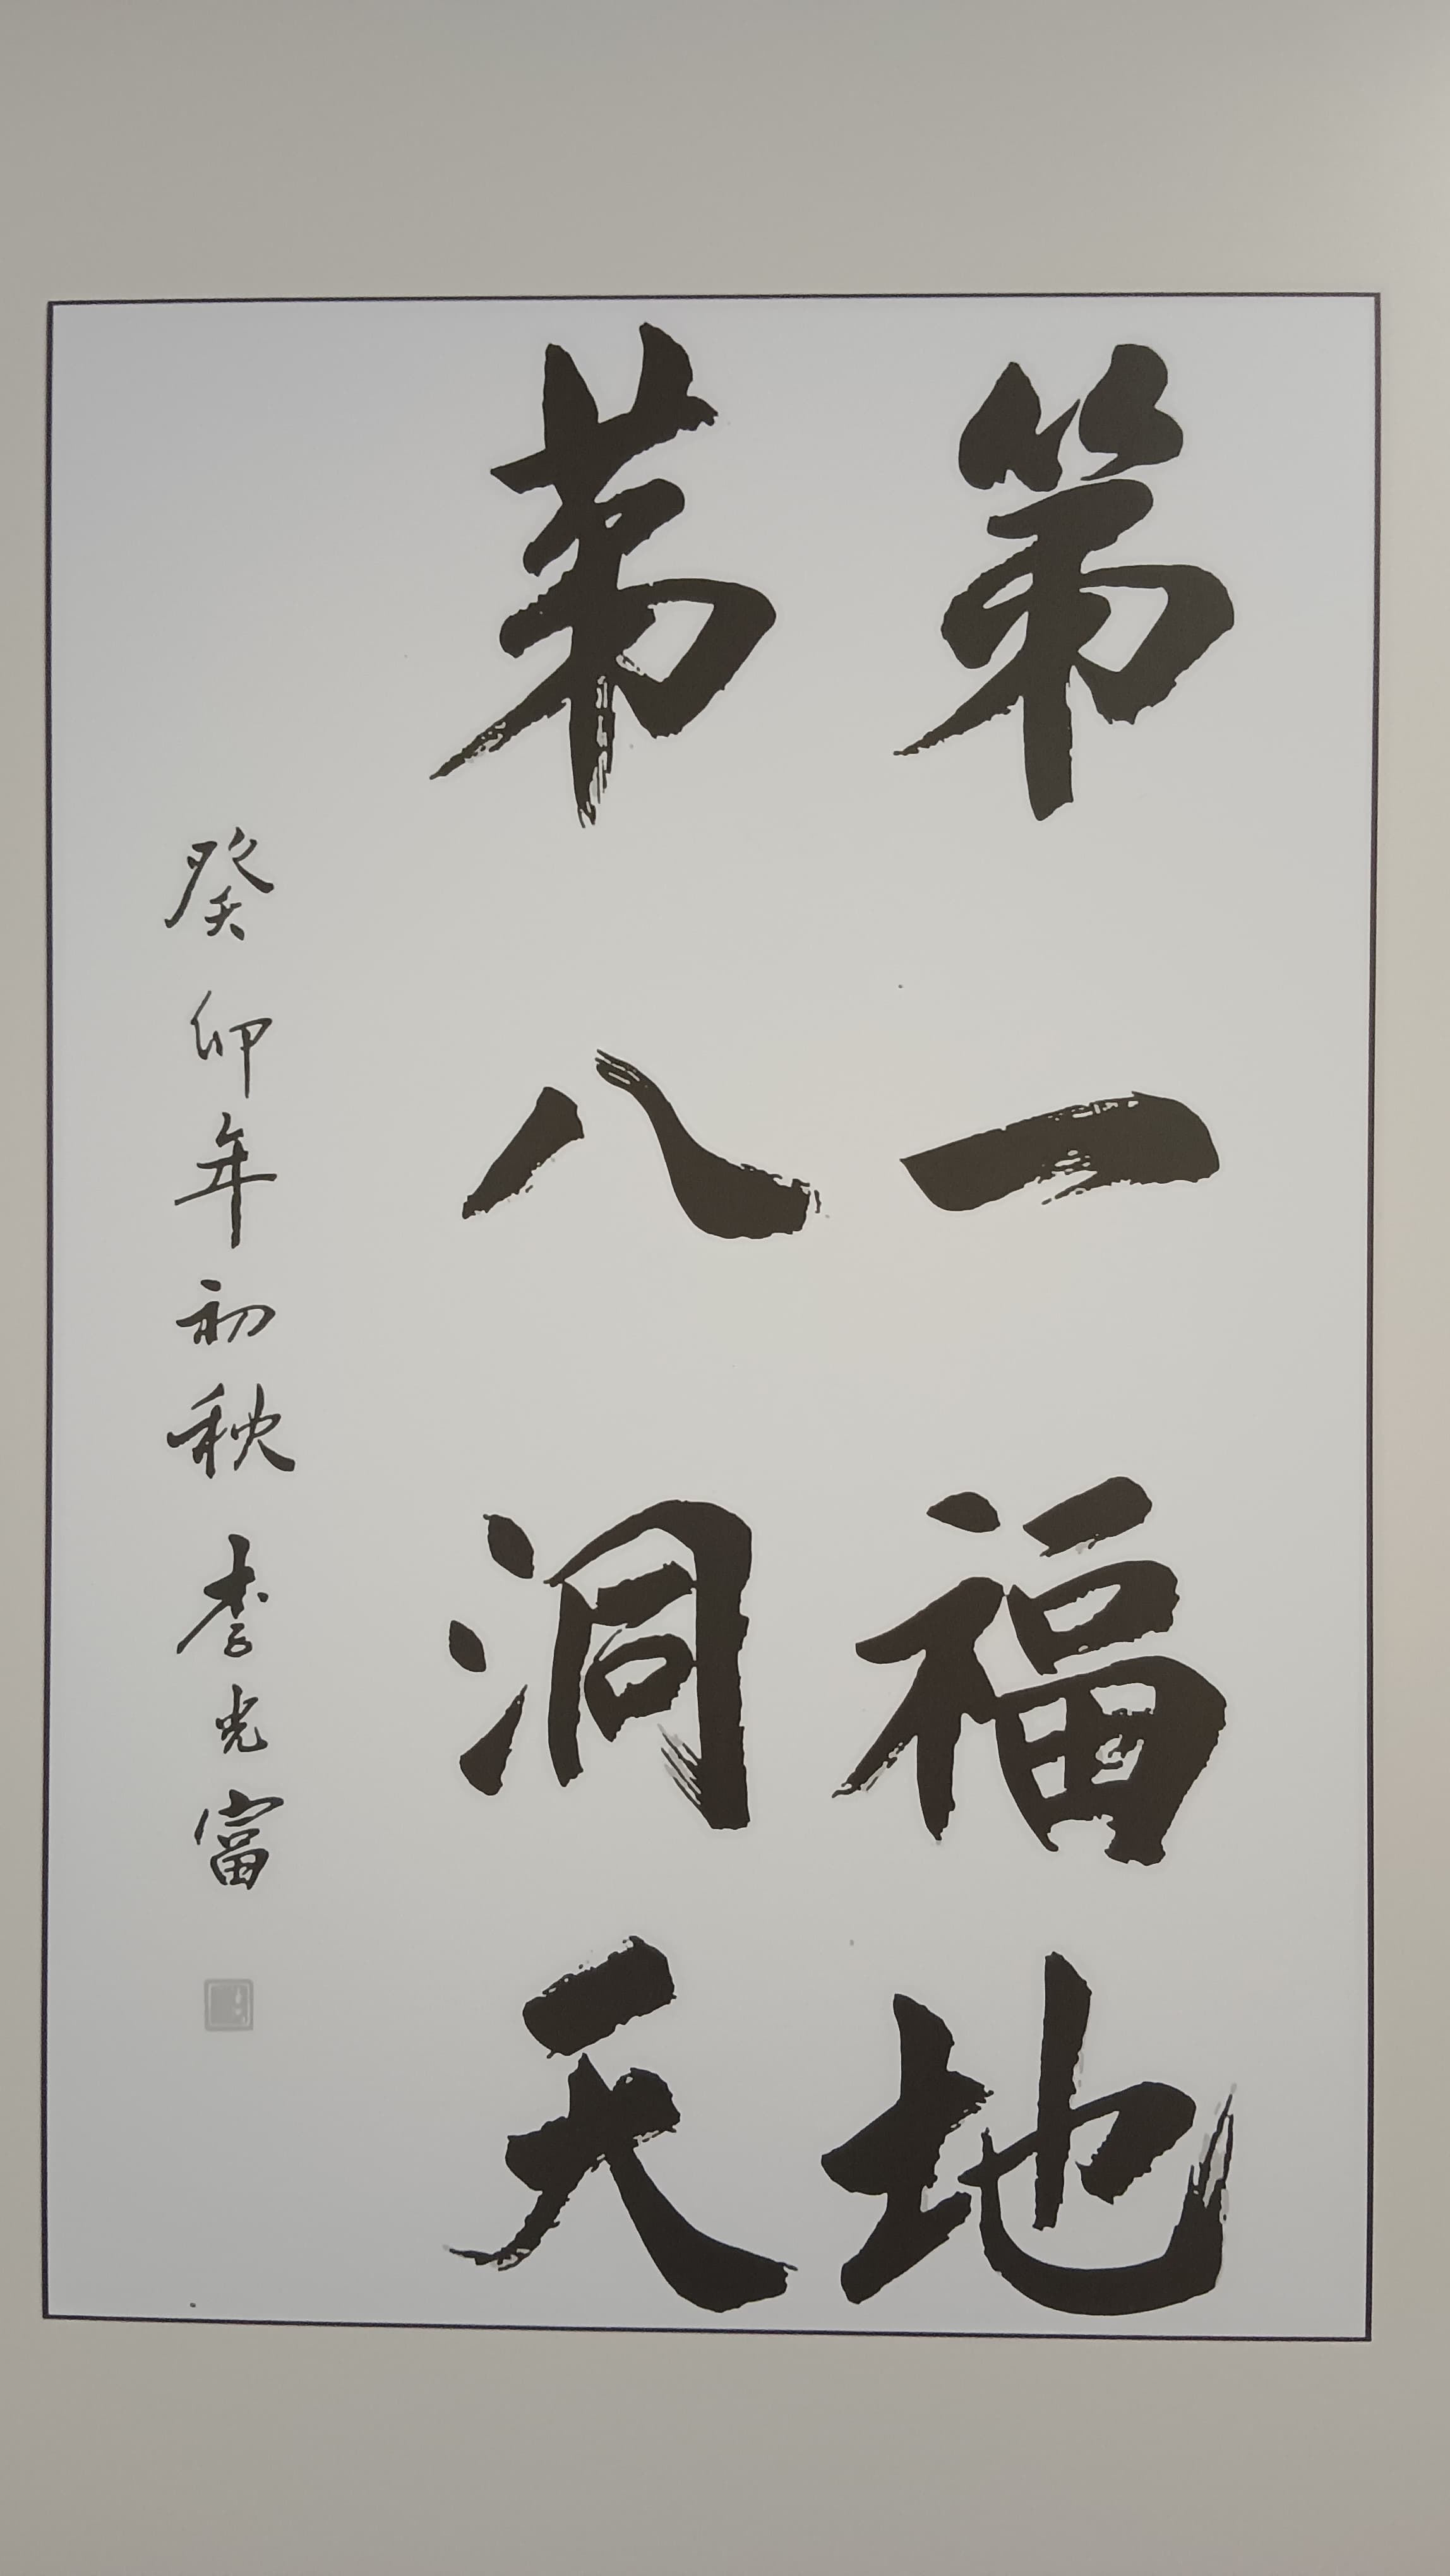 第一福地
苐八洞天
癸卯年初秋 李光富